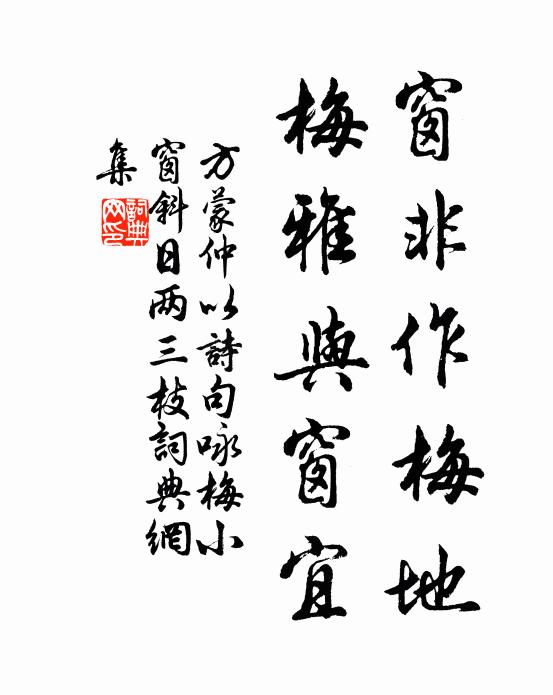 窗非作梅地
梅雅與窗宜
方蒙仲以詩句咏梅小
窗斜日两三枝詞典網
集
詞典
网印